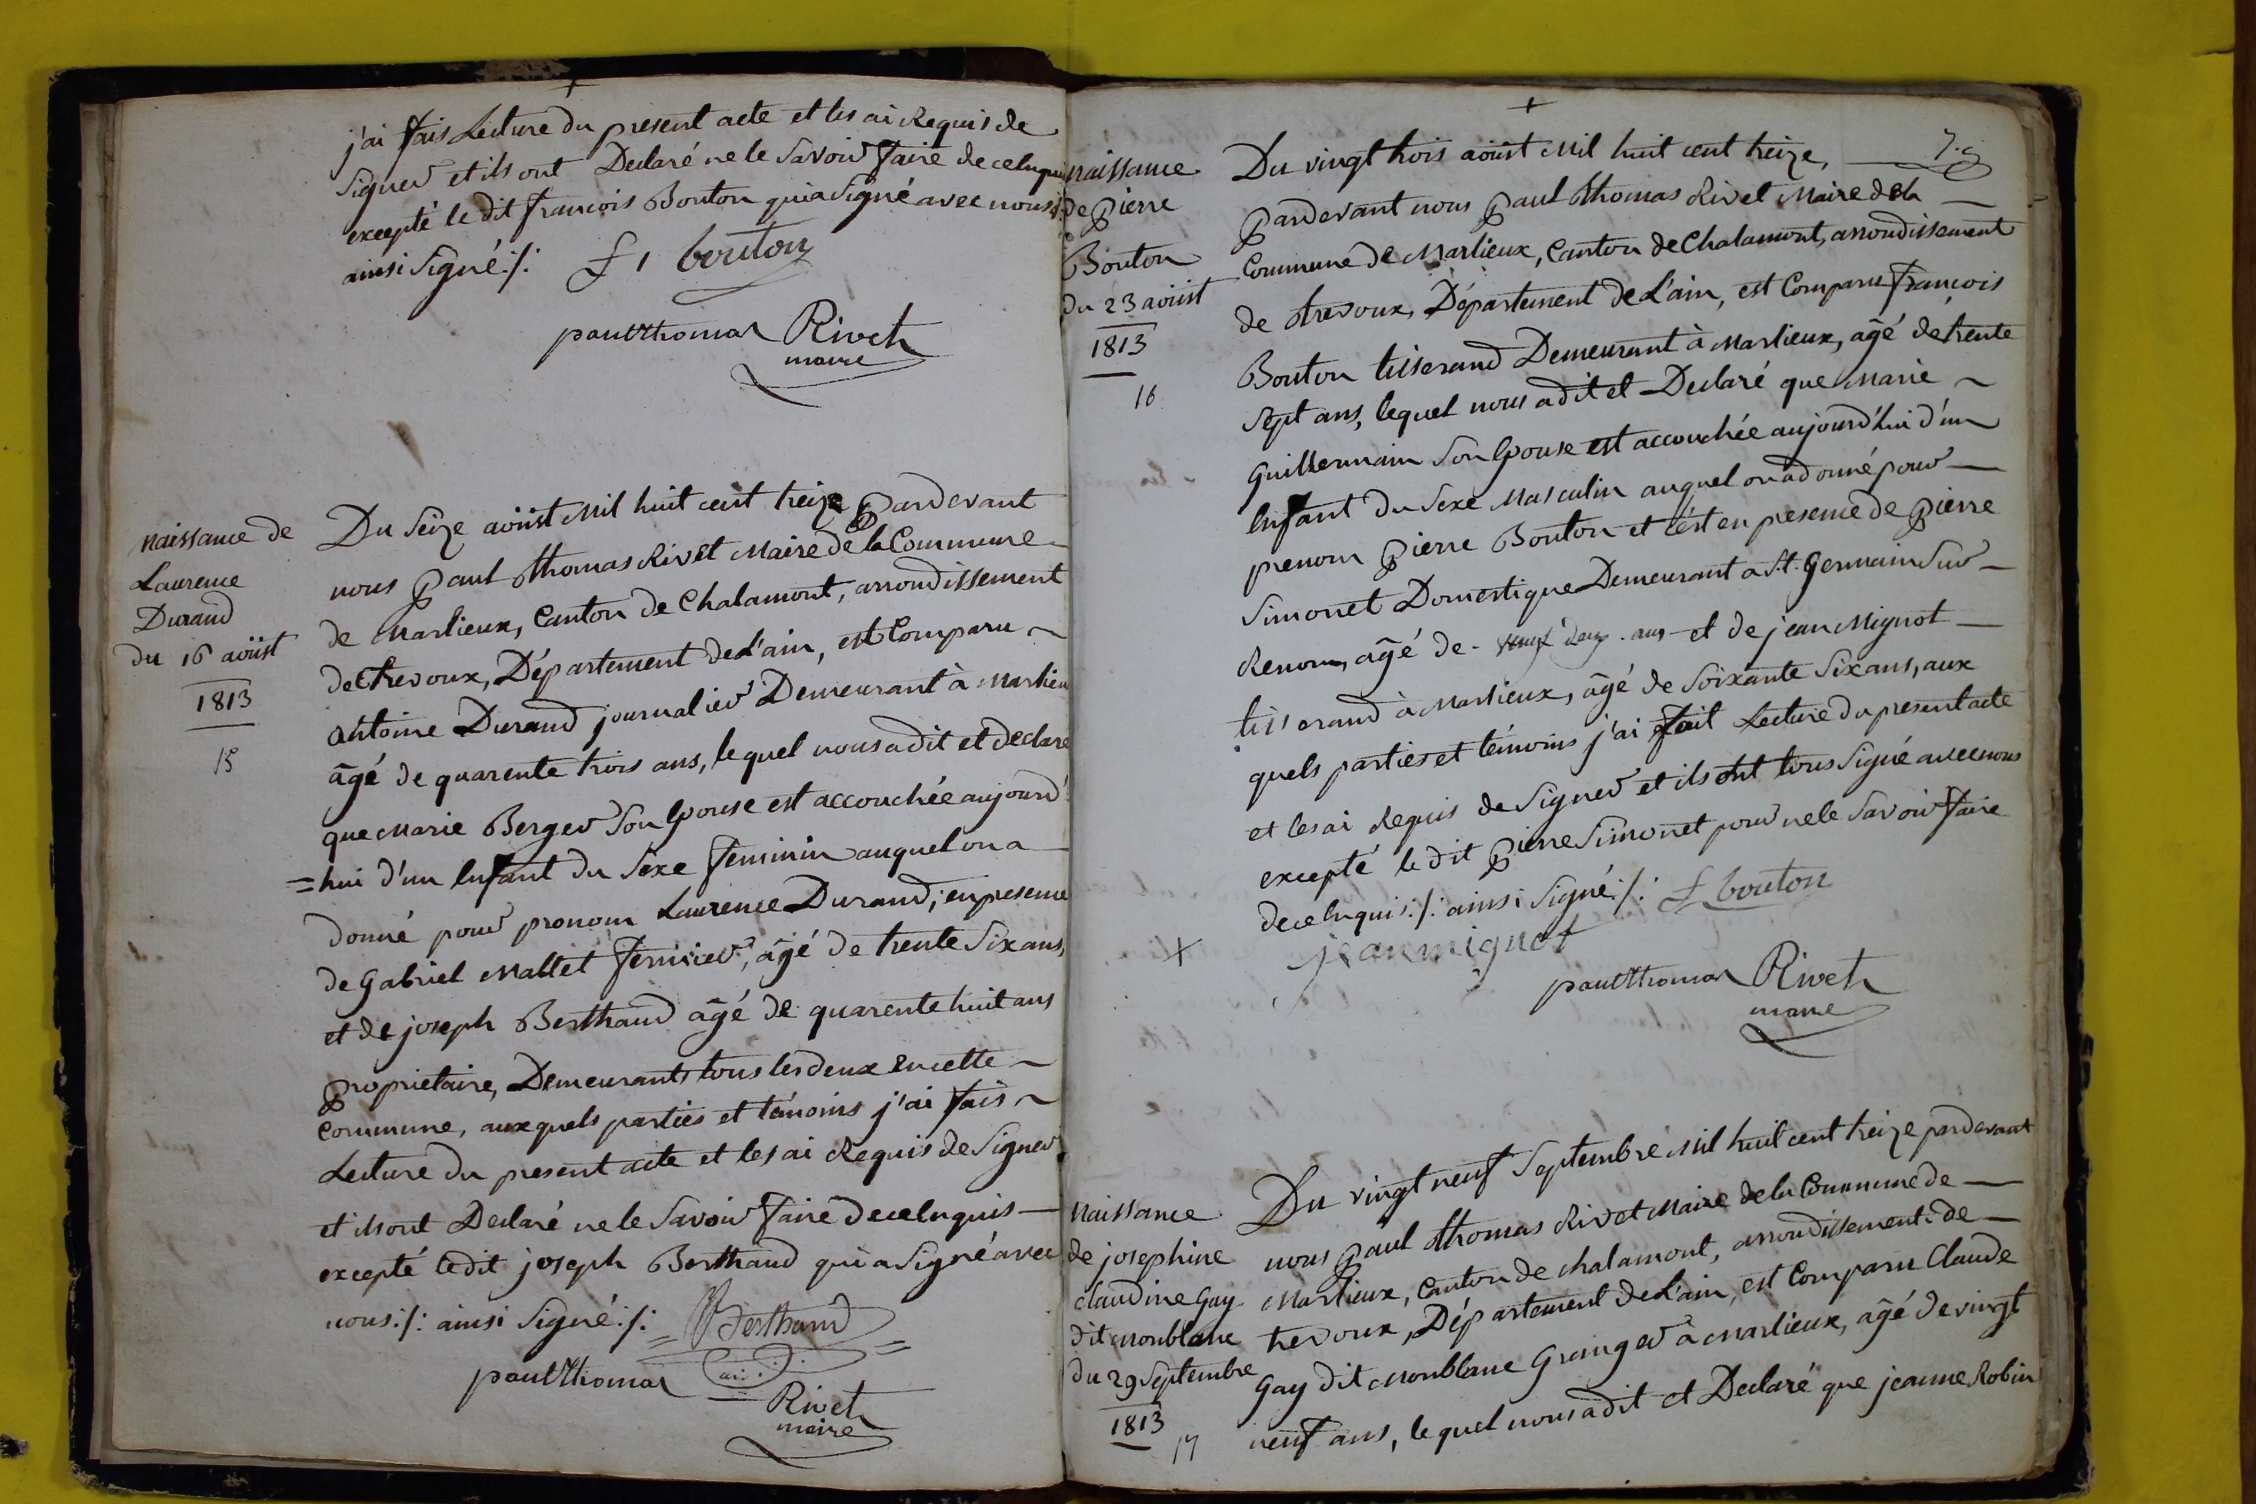 +
j'ai fais Lecture du present acte et les ai Requis de
signer et ils ont Declaré ne le savoir faire de cela quis
excepté le dit françois Bouton qui a Signé avec nous:/:
ainsi signé:/: f bouton
paul thomas Rivet
maire
naissance de
Laurence
Durand
du 16 aoüst
1813
15
Du Seize aoüst Mil huit cent treize pardevant
nous Paul thomas Rivet Maire de la Commune
de Marlieux, Canton de Chalamont, arrondissement
de trevoux, Département de L'ain, est Comparu
antoine Durand journalier Demeurant à Marlieu
âgé de quarente trois ans, lequel nous a dit et declare
que Marie Berger son Epouse est accouchée aujourd'
=hui d'un Enfant du Sexe feminin auquel on a
donné pour pronom Laurence Durand; en presence
de Gabriel Mallet fermier, âgé de trente Six ans,
et de joseph Berthaud âgé de quarente huit ans
Proprietaire, Demeurants tous les deux en cette
Commune, aux quels parties et témoins j'ai fais
Lecture du present acte et les ai Requis de Signer
et ils ont Declaré ne le Savoir faire de ce enquis
excepté ledit joseph Berthaud qui a Signé avec
nous:/: ainsi Signé:/: Berthaud
paul thomas
Rivet
maire
+
7.e
naissance
de Pierre
Bouton
du 23 aoüst
1813
16
Du vingt trois aoüst Mil huit cent treize,
Pardevant nous Paul thomas Rivet Maire de la
Commune de Marlieux, Canton de Chalamont, arrondissement
de trevoux, Département de L'ain, est Comparu françois
Bouton tisserand Demeurant à Marlieux, âgé de trente
Sept ans, lequel nous a dit et Declaré que Marie
Guillermain Son Epouse est accouchée aujourd'hui d'un
Enfant du Sexe Masculin auquel on a donné pour
prenom Pierre Bouton et c'est en presence de Pierre
Simonet Domestique Demeurant a St. Germain Sur
Renom, âgé de ans et de jean Mignot
tisserand à Marlieux, âgé de Soixante Six ans, aux
quels parties et témoins j'ai fait Lecture du present acte
et les ai Requis de Signer et ils ont tous Signé avec nous
excepté le dit Pierre Simonet pour ne le Savoir faire
de ce enquis:/: ainsi Signé:/: f bouton
+ jean mignot
paul thomas Rivet
maire
Naissance
de josephine
claudine Gay
dit Monblanc
du 29 Septembre
1813
17
Du vingt neuf Septembre Mil huit cent treize pardevant
nous Paul thomas Rivet Maire de la Commune de
Marlieux, Canton de chalamont, arrondissement de
trevoux, Département de L'ain, est Comparu Claude
Gay dit Monblanc Granger à Marlieux, âgé de vingt
neuf ans, lequel nous a dit et Declaré que jeanne Robin